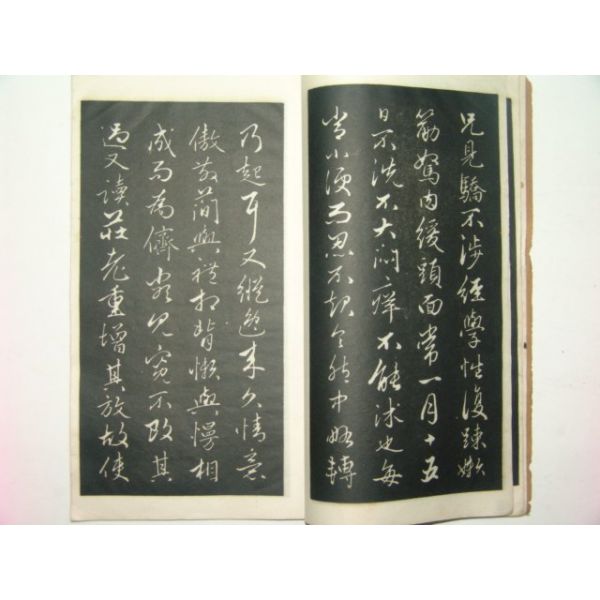 兄見驕不涉經學性復踈嬾
筋駑肉緩頭面常一月十五
日不洗不大悶癢不能沐也每
常小便而忍不起令胞中略轉
乃起耳又縱逸來久情意
傲散簡與禮相背懶與慢相
成而為儕類見寬不攻其
過又讀莊老重增其放故使